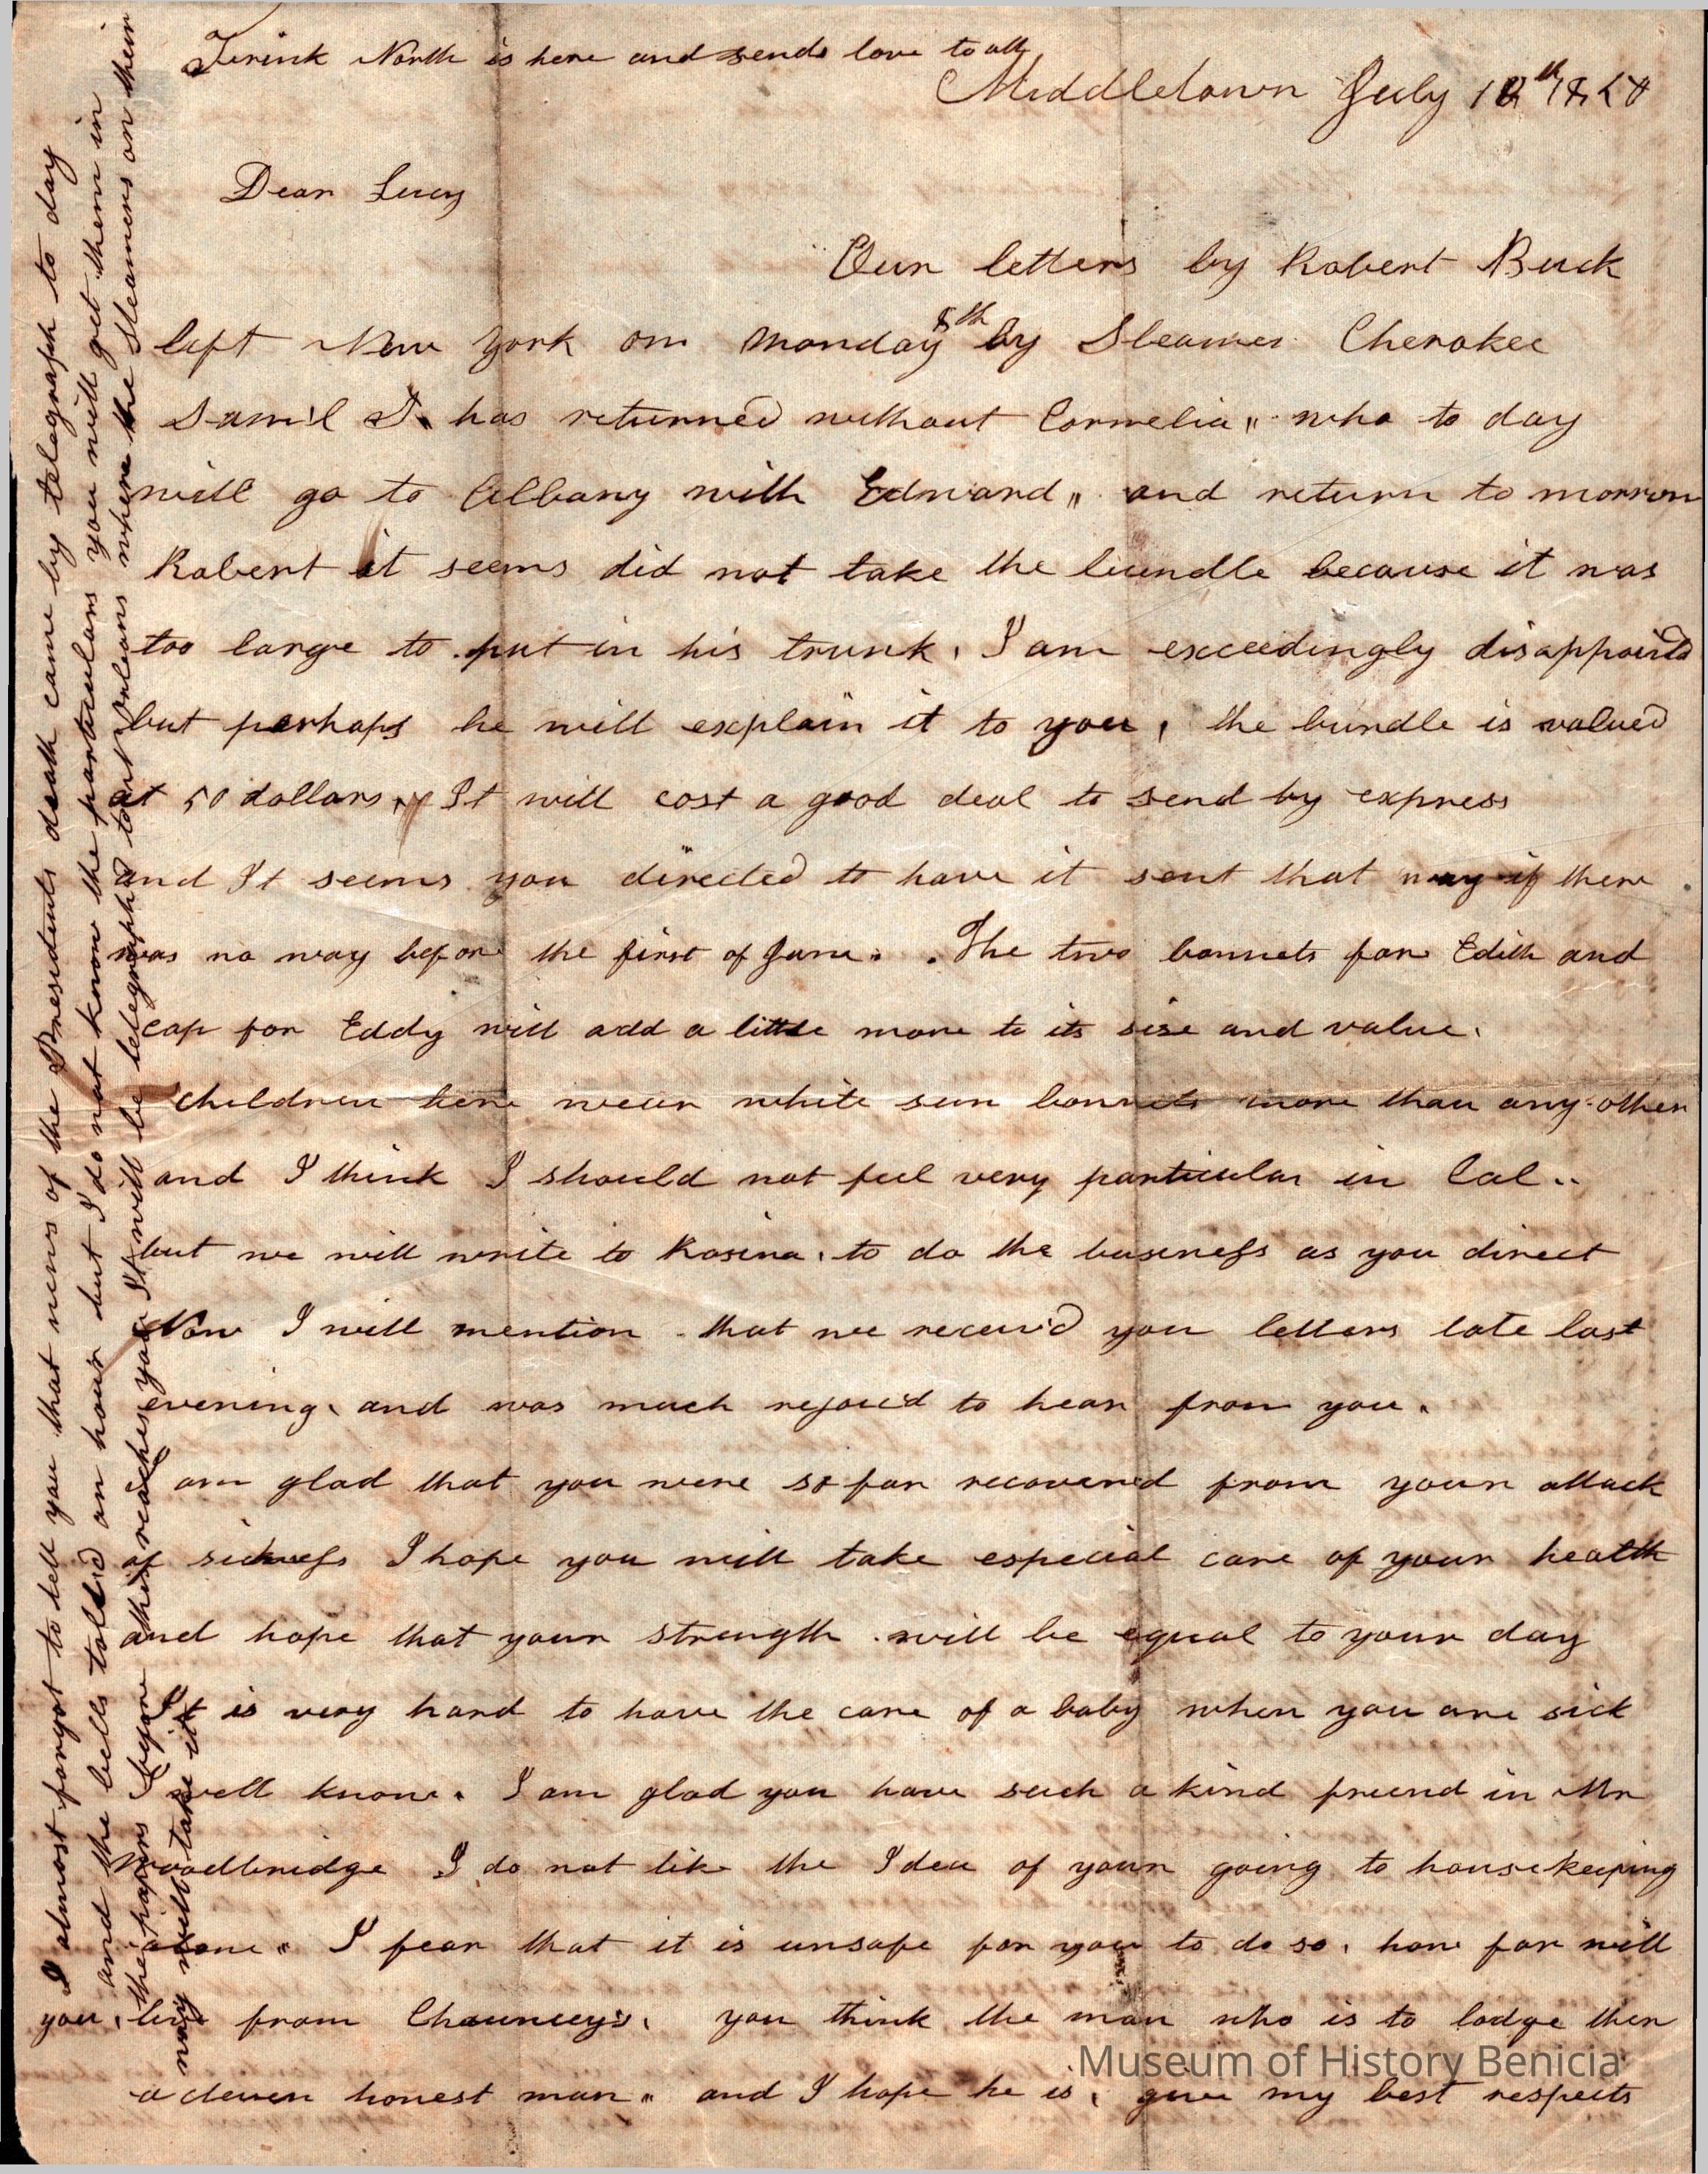 Terink North is here and sends love to all
Middletown July 10th 1850
Dear Lucy
Our letters by Robert Buck
left New York on Monday 8th by Steamer Cherokee
Sam'l I. has returned without Cornelia " who to day
will go to Albany with Edward " and return to morrow
Robert it seems did not take the bundle because it was
too large to put in his trunk. I am exceedingly disappoint'd
but perhaps he will explain it to you, the bundle is valued
at 50 dollars, It will cost a good deal to send by express
and It seems you directed to have it sent that way if there
was no way before the first of June. The two bonnets for Edith and
cap for Eddy will add a little more to its sise and value.
children here wear white sun bonnets more than any other
and I think I should not feel very particular in Cal..
but we will write to Rosina, to do the business as you direct
Now I will mention that we receiv'd you letters late last
evening, and was much rejoic'd to hear from you.
I am glad that you were so far recover'd from your attack
of sickness I hope you will take especial care of your health
and hope that your strength will be equal to your day
It is very hard to have the care of a baby when you are sick
I well know. I am glad you have such a kind friend in Mr
Woodbridge I do not like the Idea of your going to housekeeping
alone " I fear that it is unsafe for you to do so, how far will
you, live from Chauncey's, you think the man who is to lodge ther
a clever honest man " and I hope he is, give my best respects
I almost forgot to tell you that news of the Presidents death came by telegraph to day
and the bells tolled an hour but I do not know the particulars you will get them in
the papers before this reaches you It will be telegraph'd to N Orleans where the Steamers on their
way will take it
Museum of History Benicia